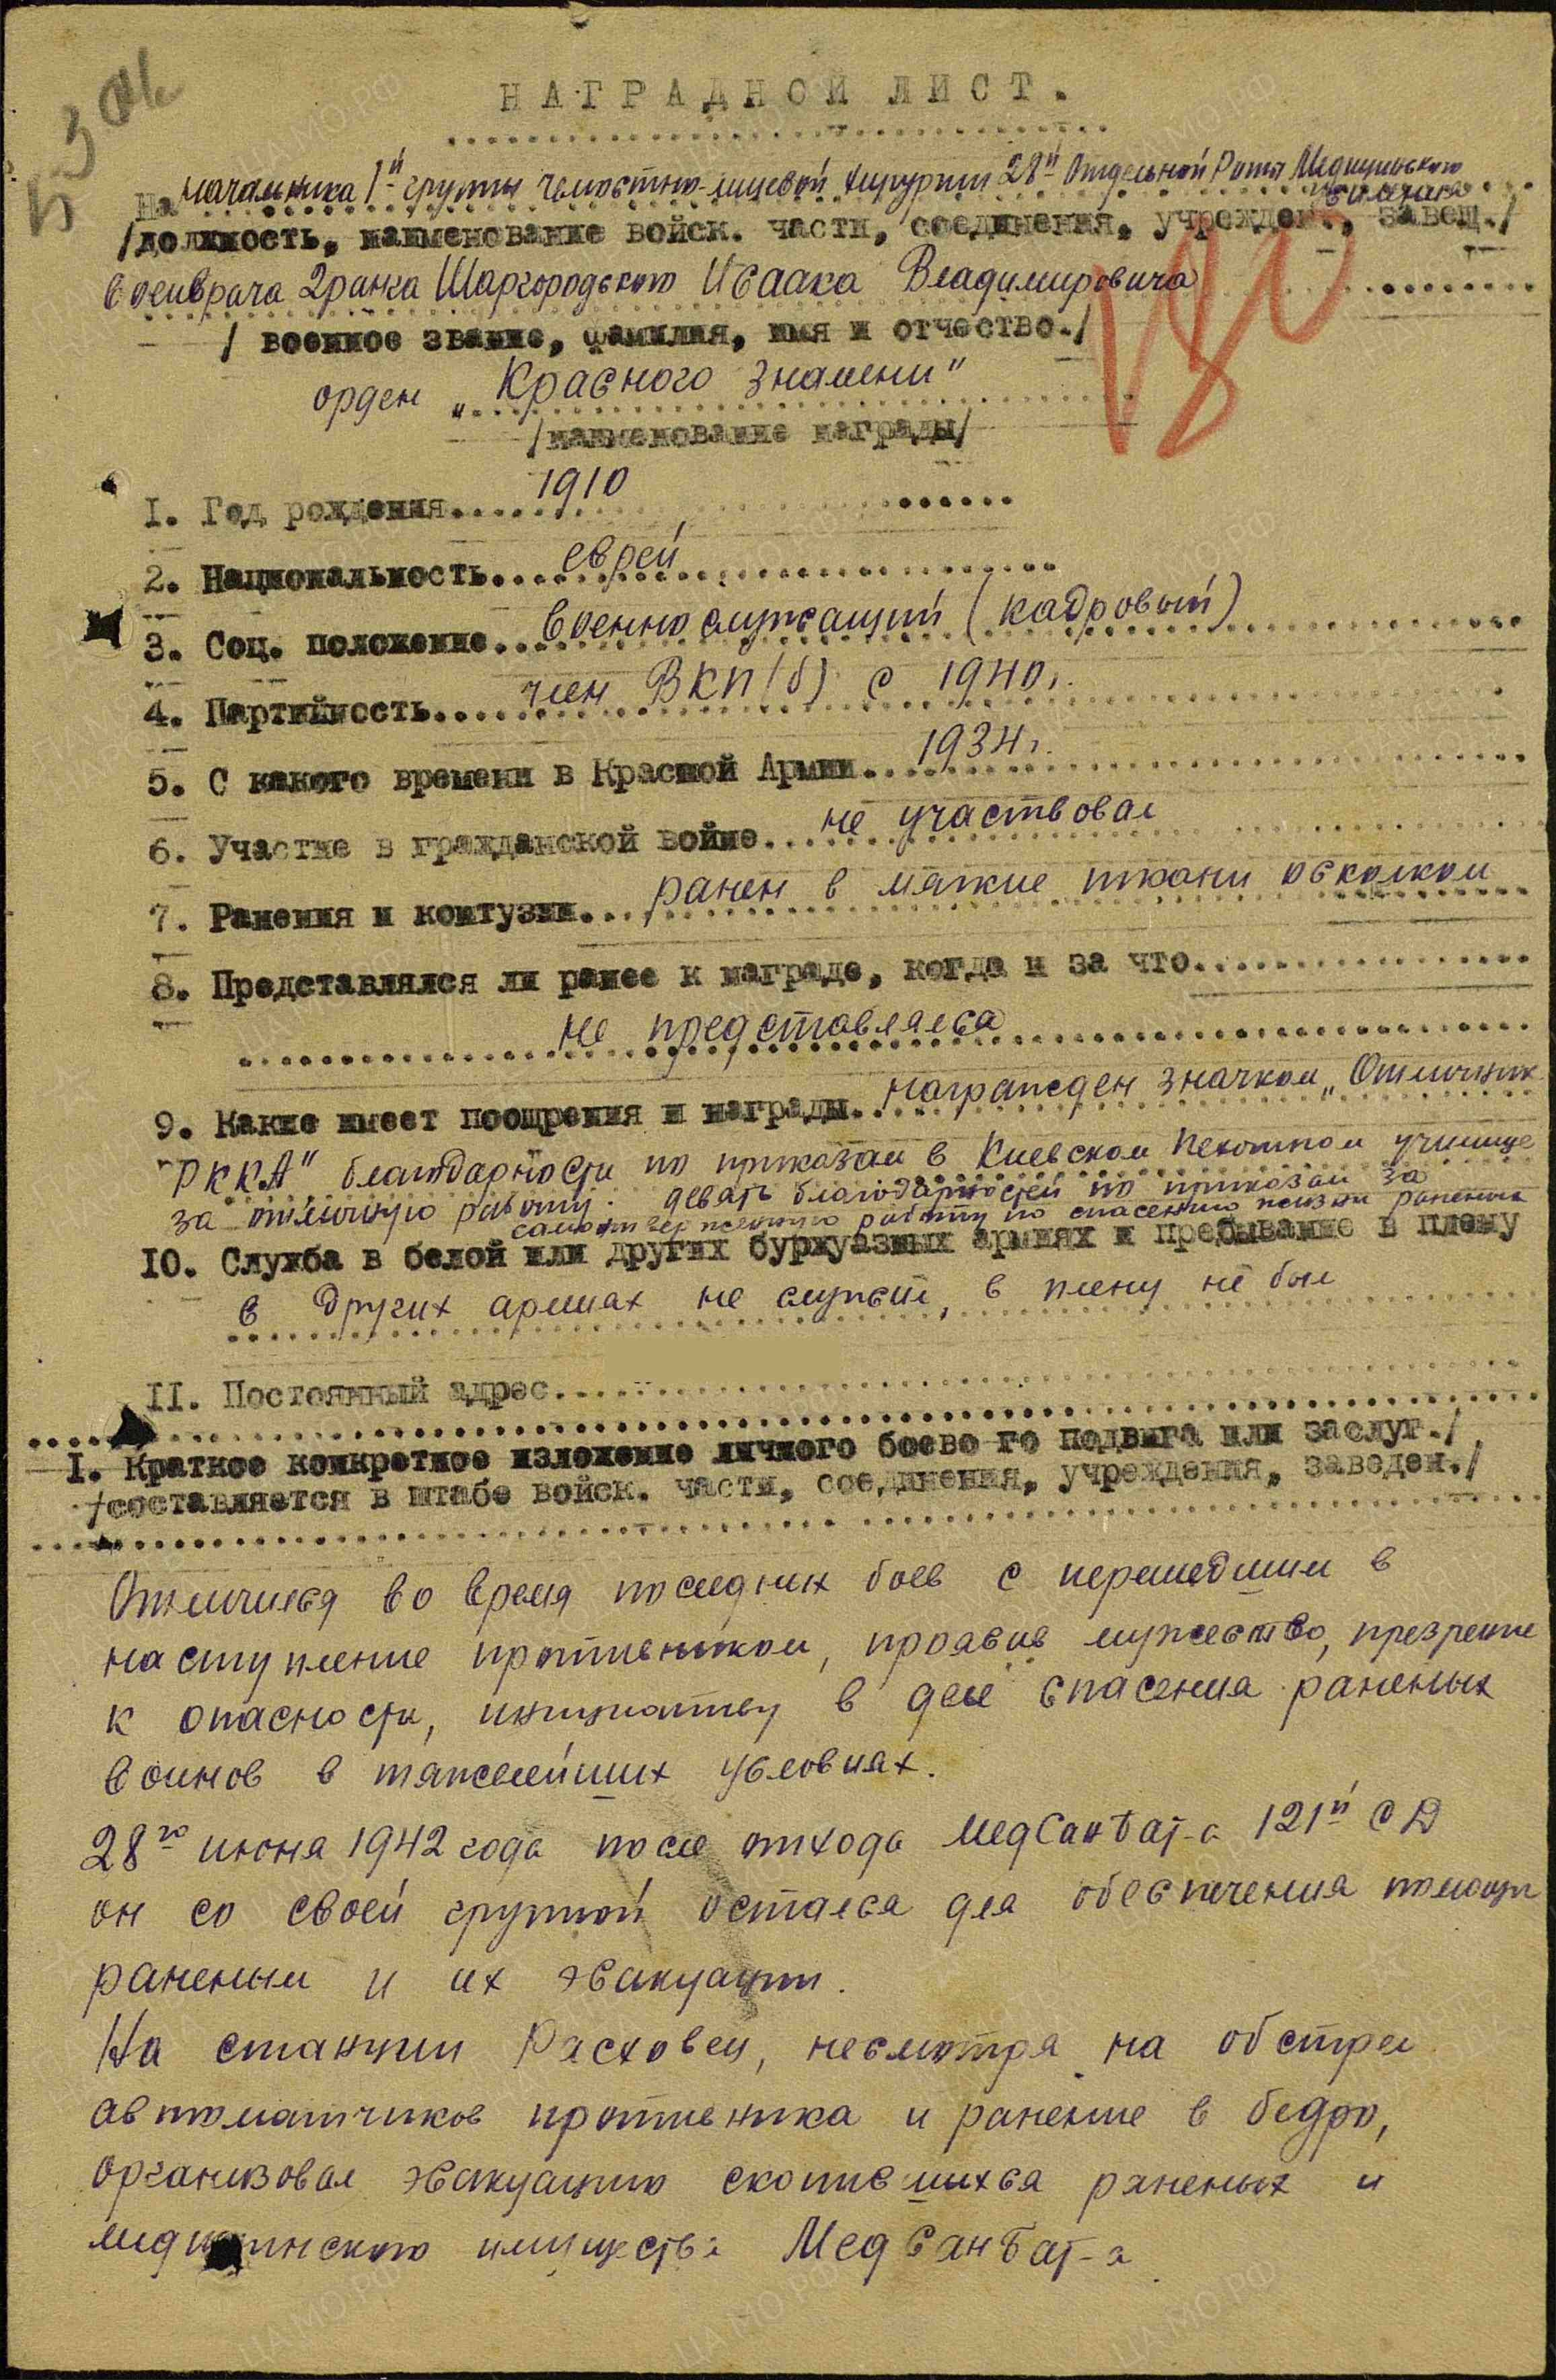 53 ок
НАГРАДНОЙ ЛИСТ.
На начальника 1й группы челюстно-лицевой хирургии 28й Отдельной Роты Медицинского
усиления
/должность, наименование войск. части, соединения, учрежден., завещ./
военврача 2 ранга Шаргородского Исаака Владимировича
/ военное звание, фамилия, имя и отчество./
орден „Красного Знамени"
/наименование награды/
I. Год рождения 1910
2. Национальность еврей
3. Соц. положение военнослужащий (кадровый)
4. Партийность член ВКП(б) с 1940г.
5. С какого времени в Красной Армии 1934г.
6. Участие в гражданской войне не участвовал
7. Ранения и контузии ранен в мягкие ткани осколком
8. Представлялся ли ранее к награде, когда и за что
не представлялся
9. Какие имеет поощрения и награды награжден значком „Отличник
РККА" благодарности по приказам в Киевском Пехотном училище
за отличную работу. девять благодарностей по приказам за
самоотверженную работу по спасению жизни раненых
10. Служба в белой или других буржуазных армиях и пребывание в плену
в других армиях не служил, в плену не был
II. Постоянный адрес
I. Краткое конкретное изложение личного боево го подвига или заслуг./
/составляется в штабе войск. части, соединения, учреждения, заведен./
Отличился во время последних боев с перешедшим в
наступление противником, проявив мужество, презрение
к опасности, инициативу в деле спасения раненых
воинов в тяжелейших условиях.
28го июня 1942 года после отхода МедСанБат-а 121й СД
он со своей группой остался для обеспечения помощи
раненым и их эвакуации.
На станции Расховец, несмотря на обстрел
автоматчиков противника и ранение в бедро,
организовал эвакуацию скопившихся раненых и
медицинского имущества МедСанБат-а